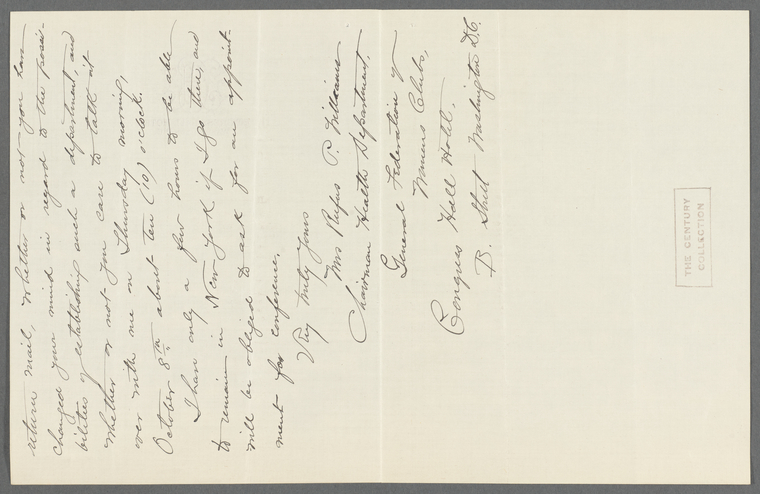 return mail, whether or not you have
changed your mind in regard to the possi-
bilities of establishing such a department, and
whether or not you care to talk it
over with me on Thursday morning,
October 8th about ten (10) o'clock.
I have only a few hours to be able
to remain in New York if I go there, and
will be obliged to ask for an appoint-
ment for conference.
Very truly yours
Mrs Rufus P. Williams
Chairman Health Department.
General Federation of
Womens Clubs,
Congress Hall Hotel,
B. Street Washington D.C.
THE CENTURY
COLLECTION